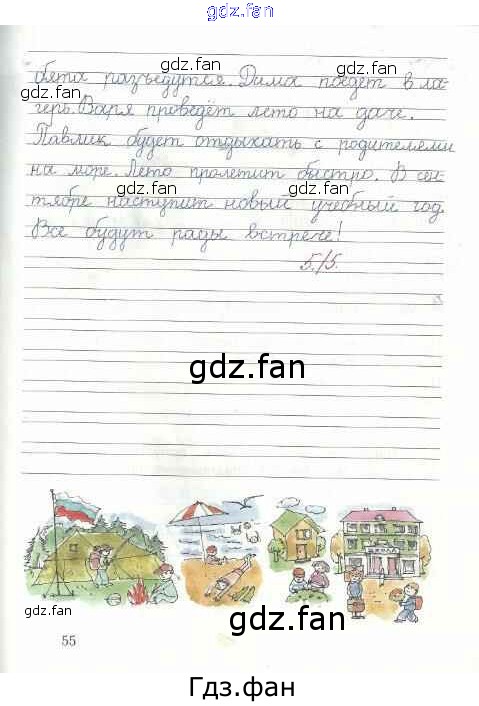 gdz.fan
gdz.fan
бята разъедутся. Дима поедет в ла-
gdz.fan
герь. Варя проведёт лето на даче.
Павлик будет отдыхать с родителями
на море. Лето пролетит быстро. В сен-
gdz.fan gdz.fan
тябре наступит новый учебный год.
Все будут рады встрече!
5/5.
gdz.fan
ШКОЛА
gdz.fan
gdz.fan
55
Гдз.фан